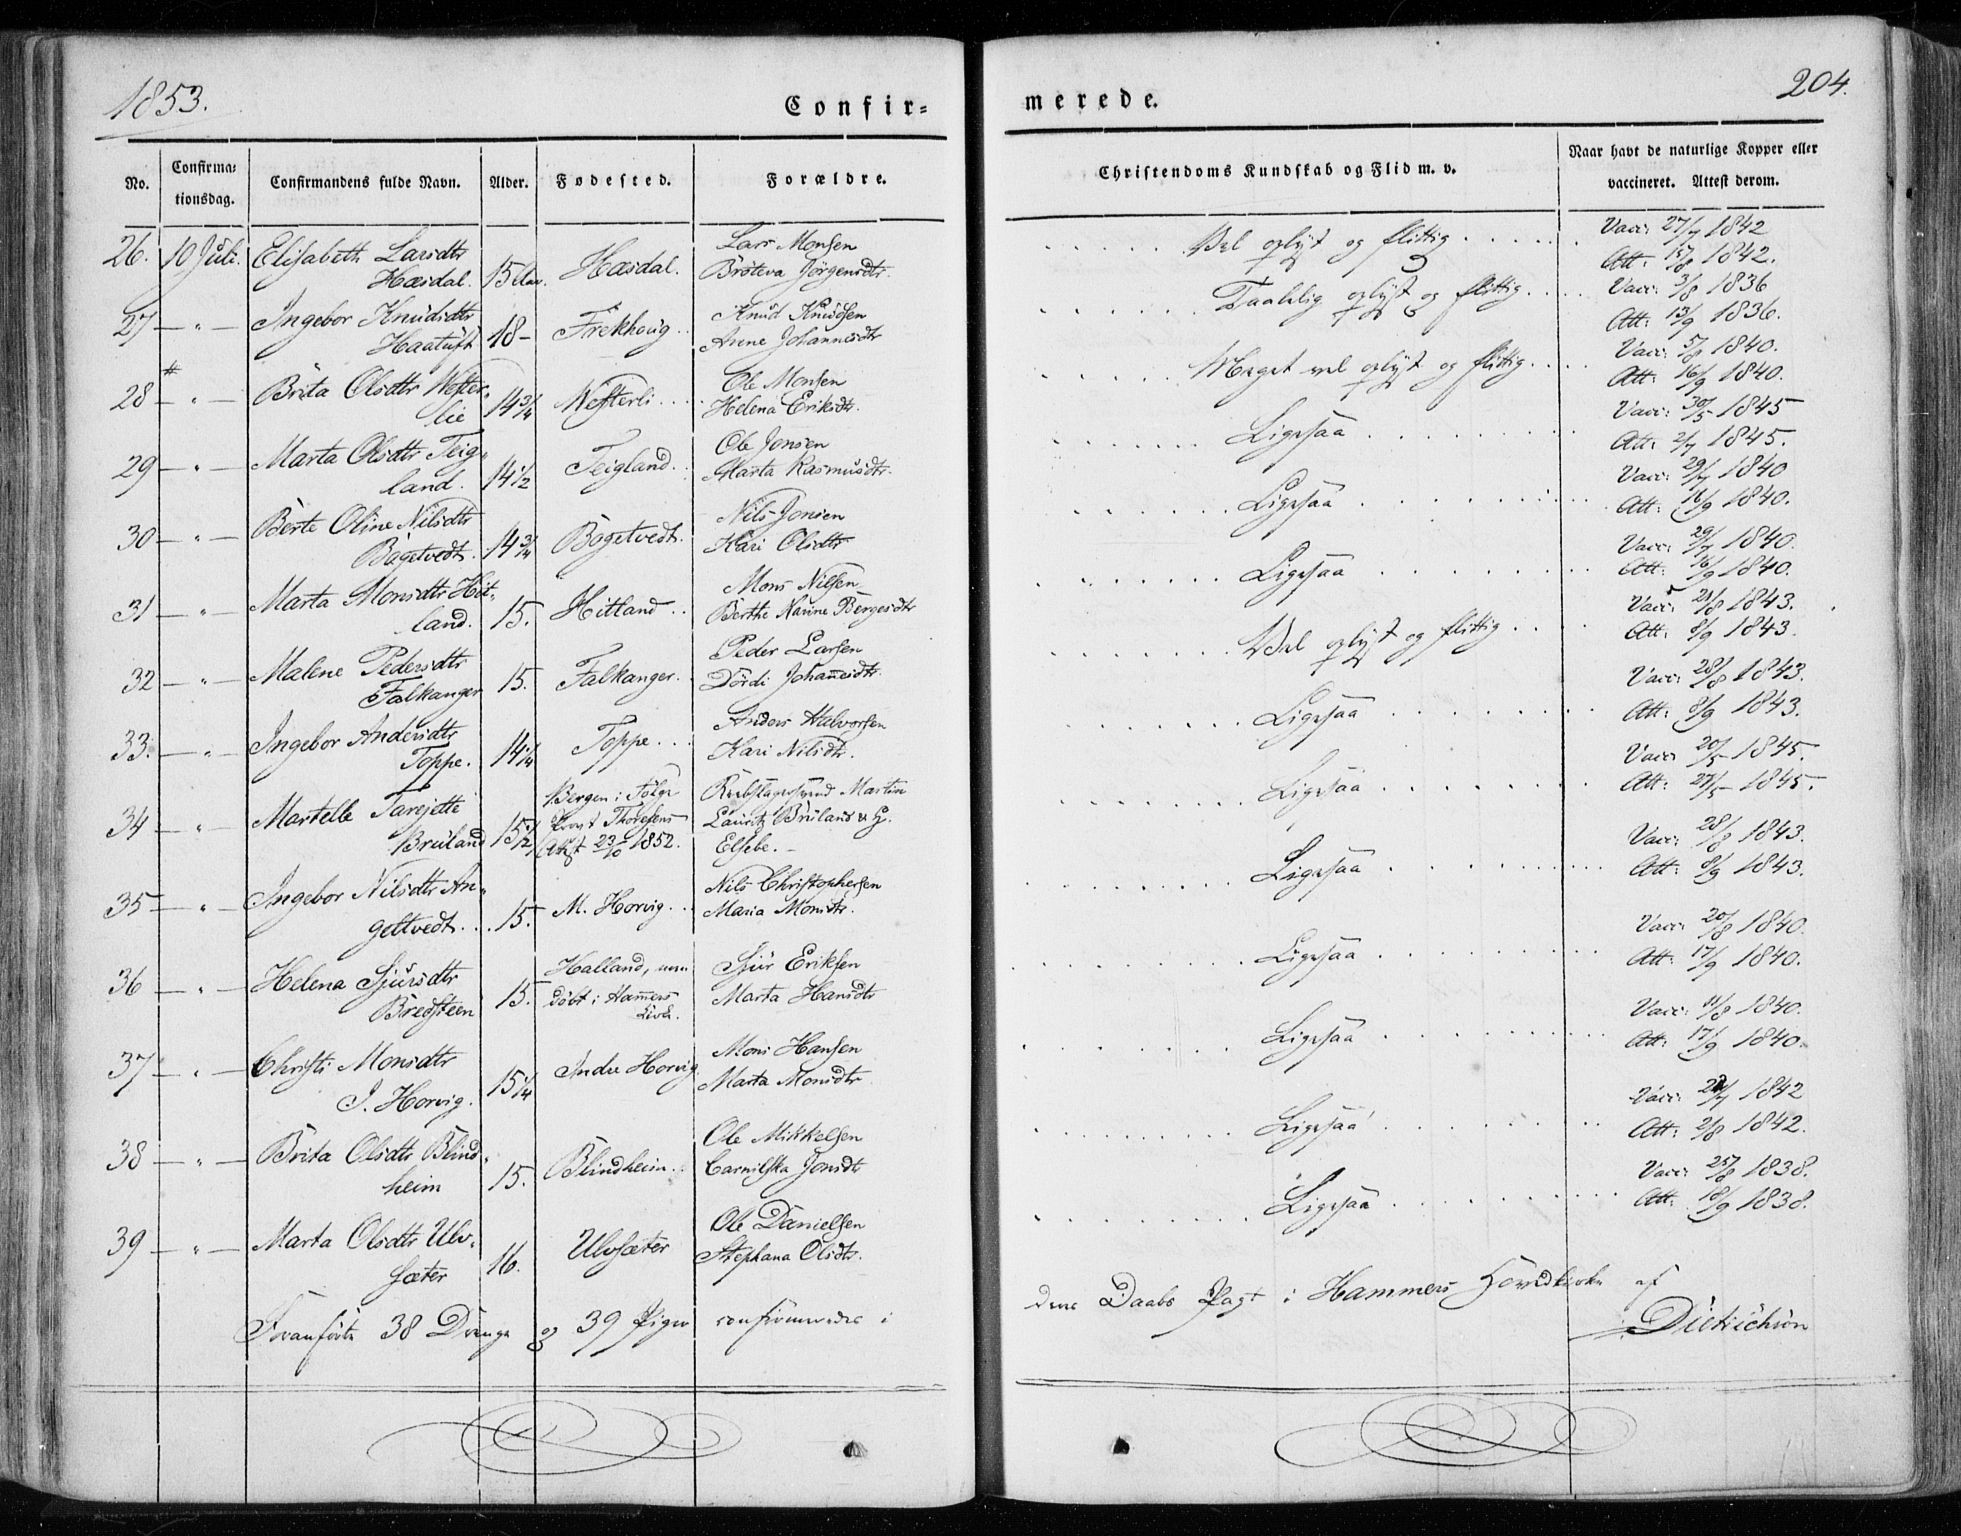 1853.
Confir=
No.
Confirma=
tionsdag.
Confirmandens fulde Navn.
Alder.
Fødested.
Forældre.
26. 10 Juli. Elisabeth Larsdtr Lars Monsen
Hæsdal. 15 Aar. Hæsdal. Bröteva Jörgensdtr.
27 — " — Ingebor Knudsdtr Knud Knudsen
Haatuft 18 - Frekhoug Anne Johannesdtr
28 — " — Brita Olsdtr Wester- Ole Monsen
lie 14 3/4 Westerli . . . Helena Eriksdtr.
29 — " — Marta Olsdtr Teig- Ole Jonsen
land. 14 1/2 Teigland. Marta Rasmusdtr.
30 — " — Berte Oline Nilsdtr Nils Jonsen
Bogetvedt. 14 3/4 Bogetvedt. Kari Olsdtr
31 — " — Marta Monsdtr Hit- Mons Nilsen
land. 15. Hitland . . Berthe Karine Börgesdtr
32 — " — Malene Pedersdtr Peder Larsen
Falkanger 15. Falkanger. Dördi Johannesdtr.
33. — " — Ingebor Andersdtr Anders Halvorsen
Toppe. 14 1/4 Toppe . . . Kari Nilsdtr.
34 — " — Martelle Tarejette Bergen i Følge Martin
Bruland 15 1/2 Provst Thoresens Lauritz Bruland & H.
Attest 23/10 1852. Elsebe. -
35 — " — Ingebor Nilsdtr An- Nils Christophersen
geltvedt. . . 15. M. Horvig . . Maria Monsdtr.
36 — " — Helena Sjursdtr Halland, men Sjur Eriksen
Bredsteen 15. döbt i Hammers Kirke. Marta Hansdtr
37 — " — Christi Monsdtr Mons Hansen
I. Horvig. 15 1/4 Indre Horvig Marta Monsdtr
38 — " — Brita Olsdtr Blind- Ole Mikkelsen
heim 15. Blindheim. Carnilska Jonsdtr
39 — " — Marta Olsdtr Ulv- Ole Danielsen
sæter 16. Ulvsæter Stephana Olsdtr.
Foranførte 38 Drenge og 39 Piger confirmeredes i
merede.
204.
Christendoms Kundskab og Flid m. v.
Naar havt de naturlige Kopper eller
vaccineret. Attest derom.
Vel oplyst og flittig . . . . . Vacc: 27/7 1842
Att: 15/8 1842.
Taalelig oplyst og flittig . . . . Vacc: 3/8 1836
Att: 13/9 1836.
Meget vel oplyst og flittig . . . . Vacc: 5/8 1840.
Att: 16/9 1840.
Ligesaa Vacc: 30/5 1845
Att: 2/7 1845.
Ligesaa Vacc: 29/7 1840
Att: 16/9 1840.
Ligesaa Vacc: 29/7 1840.
Att: 16/9 1840.
Vel oplyst og flittig . . . . Vacc: 21/8 1843.
Att: 8/9 1843.
Ligesaa Vacc: 28/8 1843.
Att: 8/9 1843.
Ligesaa Vacc: 20/5 1845.
Att: 27/5 1845.
Ligesaa Vacc: 28/8 1843.
Att: 8/9 1843.
Ligesaa Vacc: 20/8 1840.
Att: 17/9 1840.
Ligesaa Vacc: 11/8 1840.
Att: 17/9 1840.
Ligesaa Vacc: 1842
Att: 2/8 1842.
Ligesaa Vacc: 25/8 1838.
Att: 18/9 1838.
Daabs Pagt i Hammers Hovedkirke af
Dietrichson